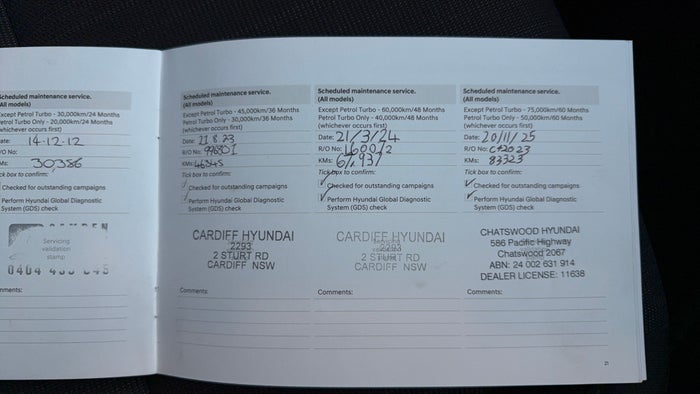 Scheduled maintenance service.
(All models)
Petrol Turbo - 30,000km/24 Months
Petrol Turbo Only - 20,000km/24 Months
(whichever occurs first)
14.12.12
R/O No:
KMs: 30386
Tick box to confirm:
Checked for outstanding campaigns
Perform Hyundai Global Diagnostic
System (GDS) check
Servicing
validation
stamp
Comments:
Scheduled maintenance service.
(All models)
Except Petrol Turbo - 45,000km/36 Months
Petrol Turbo Only - 30,000km/36 Months
(whichever occurs first)
Date: 21 8.23
R/O No:
KMs: 46345
Tick box to confirm:
Checked for outstanding campaigns
Perform Hyundai Global Diagnostic
System (GDS) check
CARDIFF HYUNDAI
2293
2 STURT RD
CARDIFF NSW
Comments:
Scheduled maintenance service.
(All models)
Except Petrol Turbo - 60,000km/48 Months
Petrol Turbo Only - 40,000km/48 Months
(whichever occurs first)
Date: 21/3/24
R/O No:
KMs:
Tick box to confirm:
Checked for outstanding campaigns
Perform Hyundai Global Diagnostic
System (GDS) check
CARDIFF HYUNDAI
2 STURT RD
CARDIFF NSW
Comments:
Scheduled maintenance service.
(All models)
Except Petrol Turbo - 75,000km/60 Months
Petrol Turbo Only - 50,000km/60 Months
(whichever occurs first)
Date: 20/11/25
R/O No:
KMs: 83323
Tick box to confirm:
Checked for outstanding campaigns
Perform Hyundai Global Diagnostic
System (GDS) check
CHATSWOOD HYUNDAI
586 Pacific Highway
Chatswood 2067
ABN: 24 002 631 914
DEALER LICENSE: 11638
Comments:
21